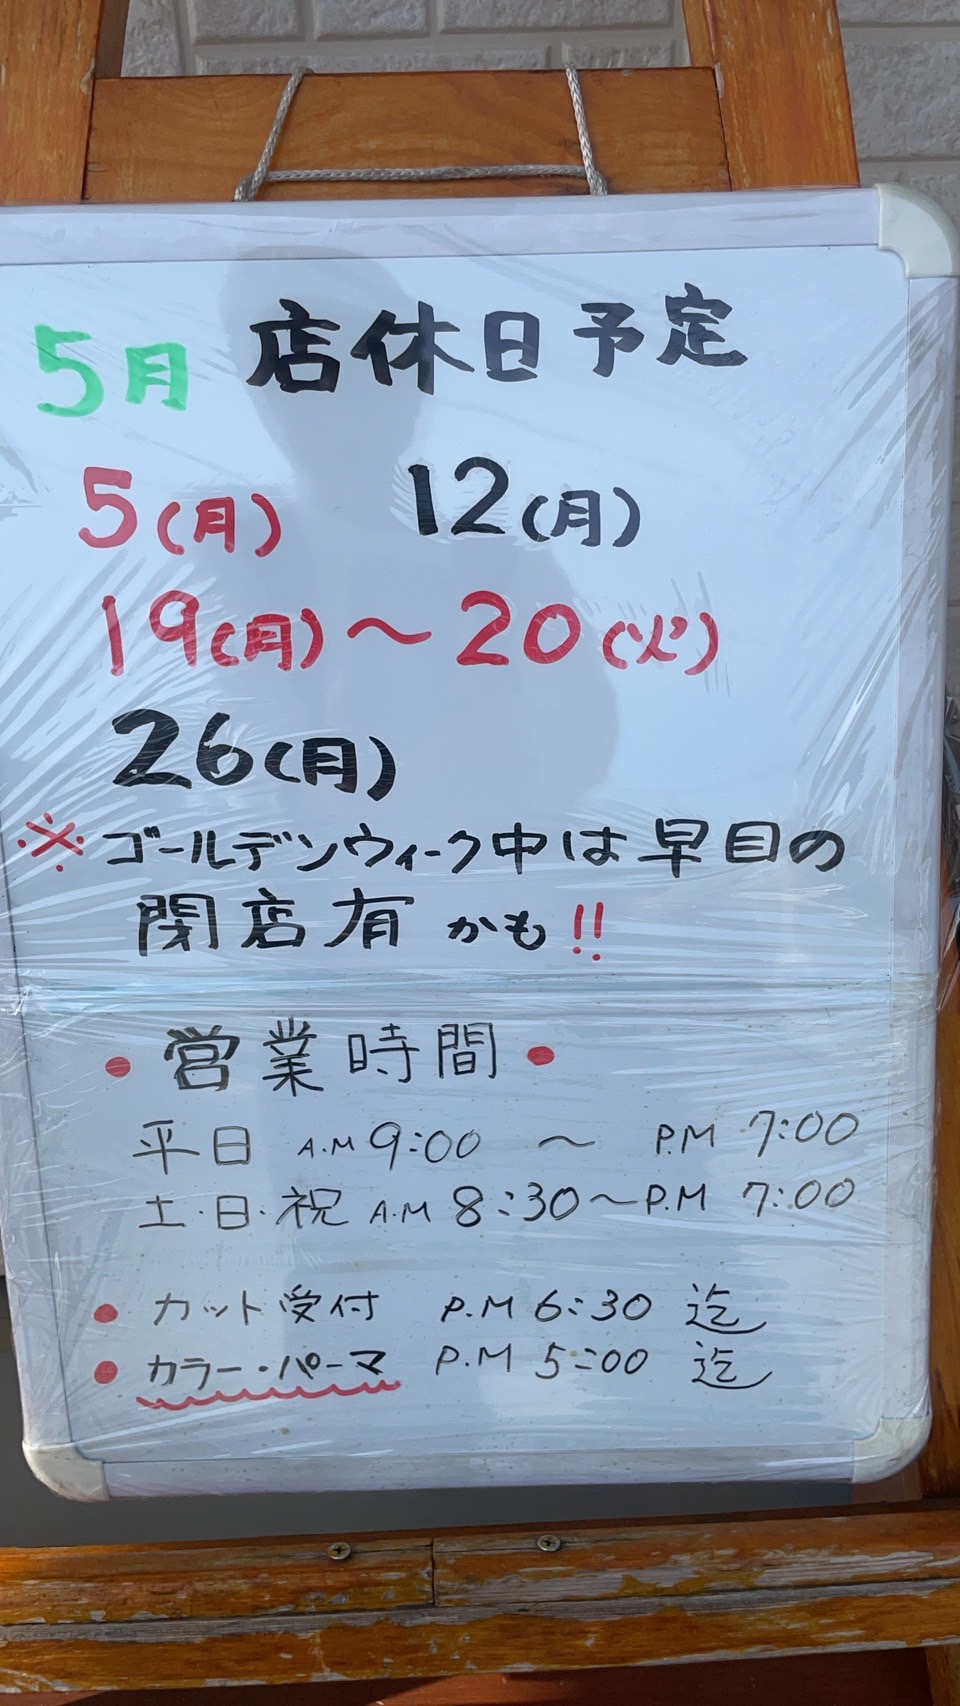 5月 店休日予定
5(月) 12(月)
19(月)～20(火)
26(月)
※ゴールデンウィーク中は早目の
閉店有かも!!
・営業時間・
平日 A.M 9:00 ～ P.M 7:00
土・日・祝 A.M 8:30～P.M 7:00
・カット受付 P.M 6:30 迄
・カラー・パーマ P.M 5:00 迄